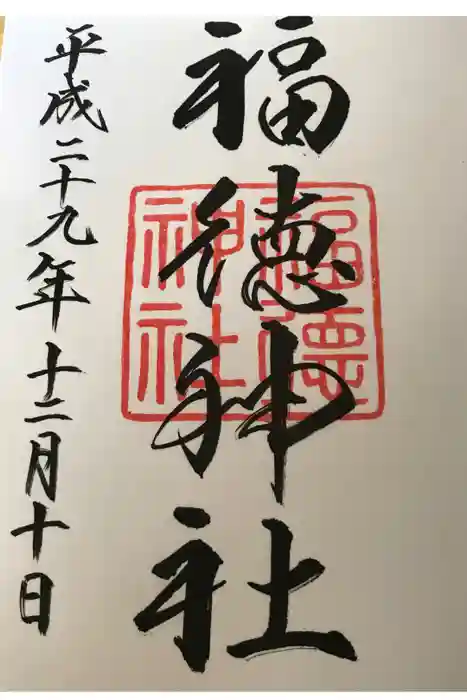 福徳神社
福德神社
平成二十九年十二月十日